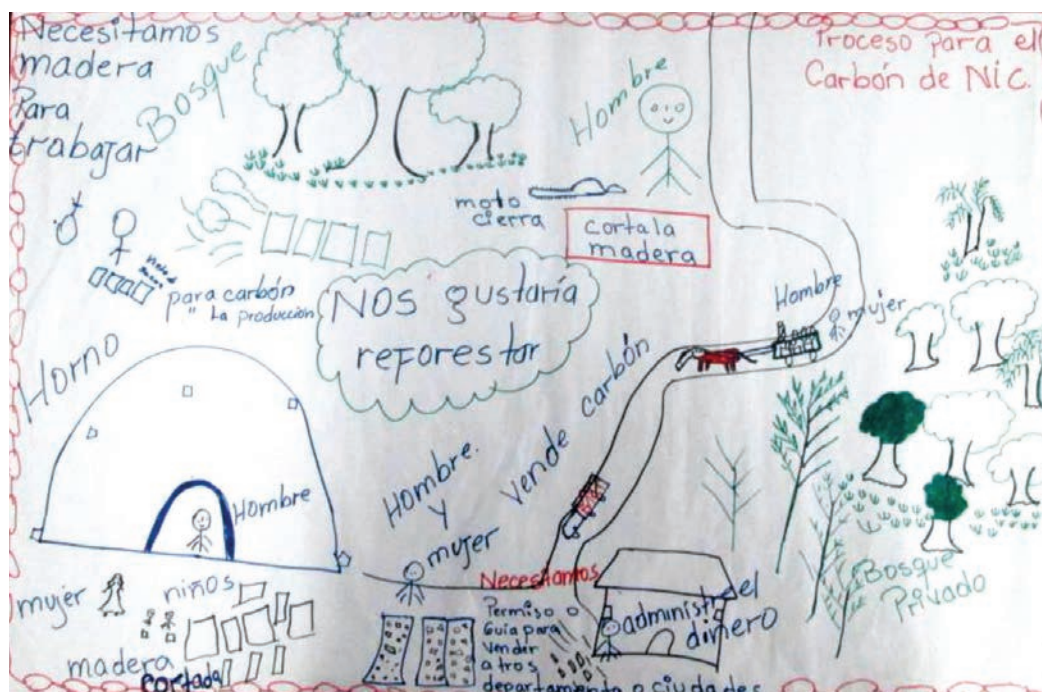 Necesitamos
madera
Para
trabajar
Bosque
Proceso para el
Carbón de Nic.
Hombre
moto
cierra
corta la
madera
para carbón
" La producción
Nos gustaría
reforestar
Hombre
mujer
Horno
Hombre
Hombre
y
mujer
vende carbón
mujer
niños
madera
cortada
Necesitamos
Permiso o
Guía para
vender
a tros
departamento o ciudades
administra el
dinero
Bosque
Privado